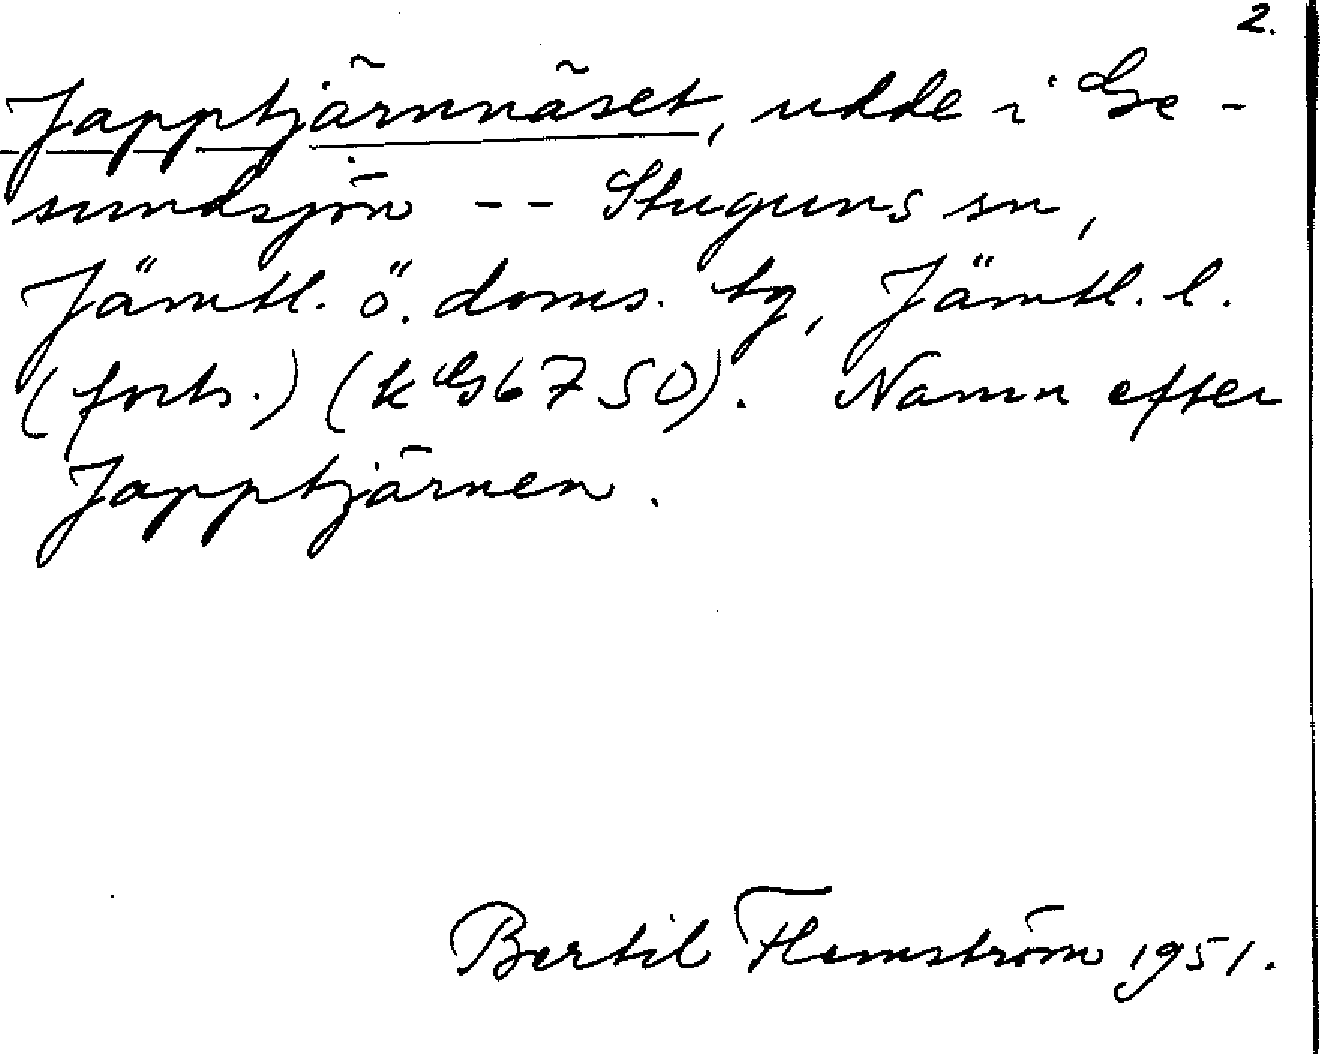 2.
Japptjärnnäset, udde i Ge-
sundsjön -- Stuguns sn,
Jämtl. ö. doms. tg, Jämtl. l.
(forts.) (k G6750). Namn efter
Japptjärnen.
Bertil Flemström 1951.